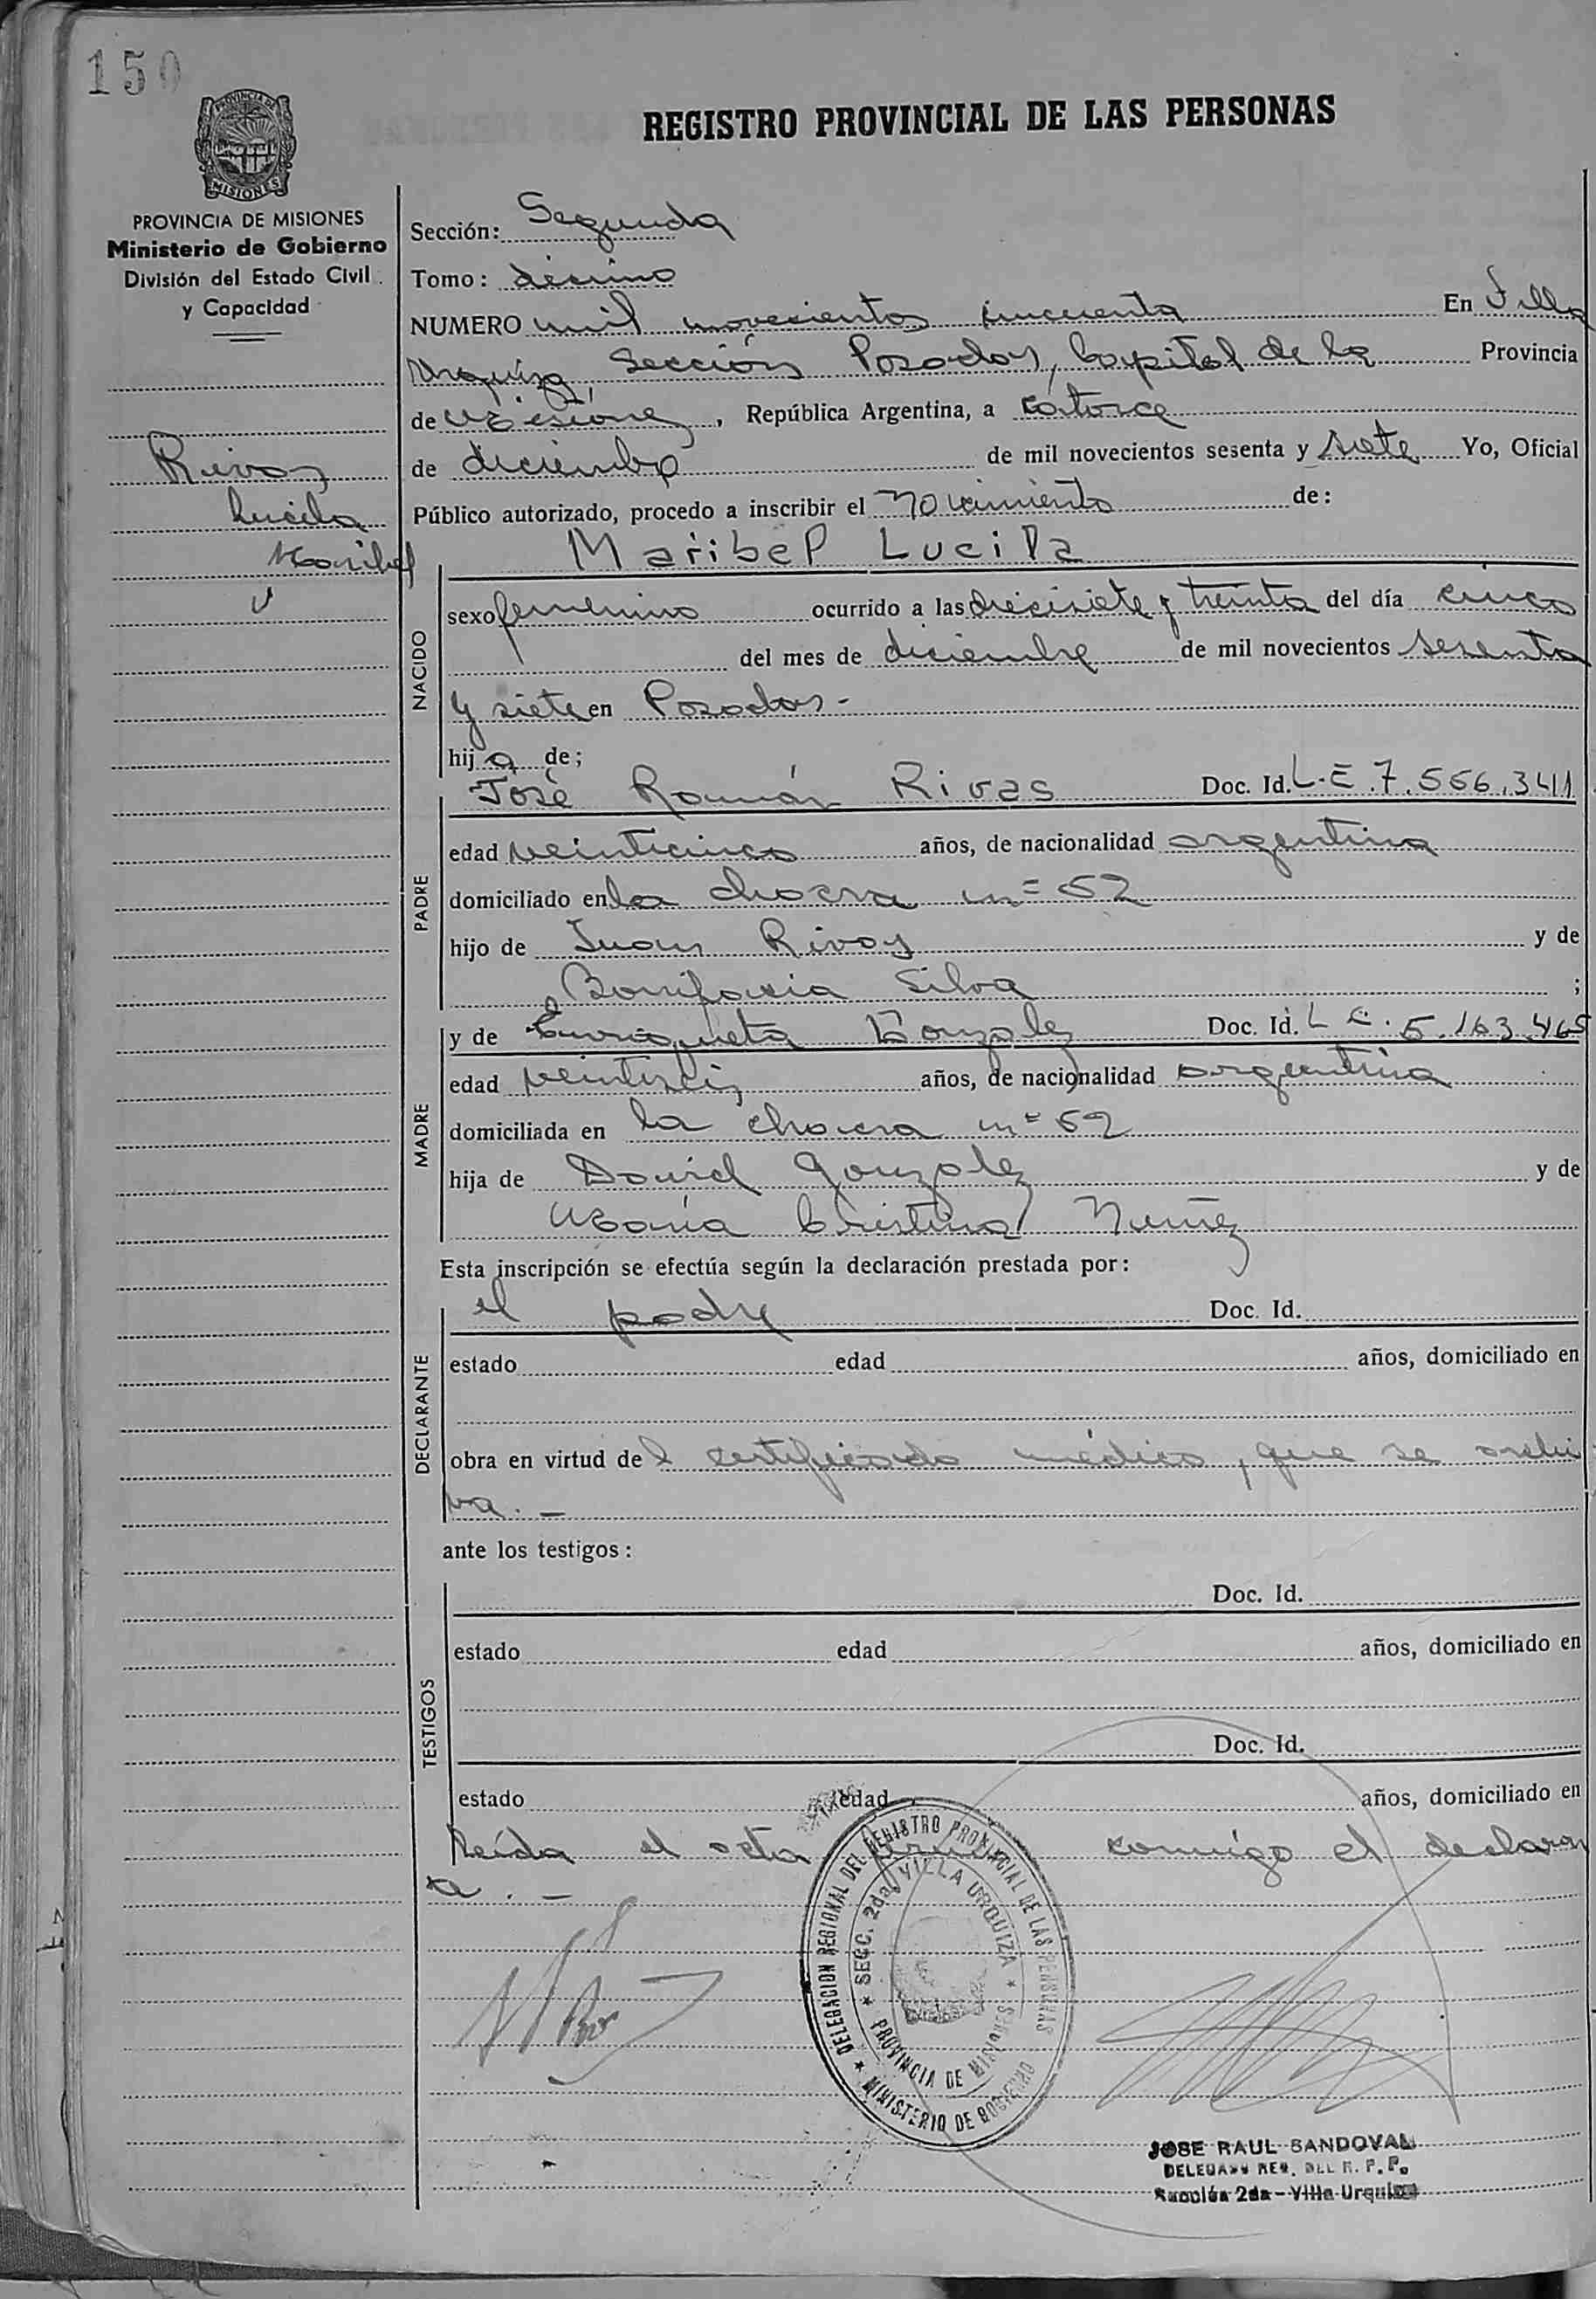 150
REGISTRO PROVINCIAL DE LAS PERSONAS
PROVINCIA DE MISIONES
MISIONES
PROVINCIA DE MISIONES
Ministerio de Gobierno
División del Estado Civil
y Capacidad
Rivas
Lucila
Maribel
Sección: Segunda
Tomo: décimo
NUMERO mil novecientos cincuenta En Villa
Urquiza, Sección Posadas, Capital de la Provincia
de Misiones, República Argentina, a catorce
de diciembre de mil novecientos sesenta y siete Yo, Oficial
Público autorizado, procedo a inscribir el nacimiento de:
Maribel Lucila
NACIDO
sexo femenino ocurrido a las diecisiete y treinta del día cinco
del mes de diciembre de mil novecientos sesenta
y siete en Posadas.-
hija de;
PADRE
José Román Rivas Doc. Id. L.E. 7.556.341
edad veinticinco años, de nacionalidad argentina
domiciliado en la chacra n= 52
hijo de Juan Rivas y de
Bonifacia Silva ;
MADRE
y de Enriqueta González Doc. Id. L C. 5.163.465
edad años, de nacionalidad argentina
domiciliada en la chacra n= 52
hija de David González y de
María Cristina Nuñez
Esta inscripción se efectúa según la declaración prestada por:
DECLARANTE
el padre Doc. Id.
estado edad años, domiciliado en
obra en virtud del certificado médico, que se archi
va.-
ante los testigos:
TESTIGOS
Doc. Id.
estado edad años, domiciliado en
Doc. Id.
estado edad años, domiciliado en
Leída el acta firma conmigo el declaran
te.-
DELEGACION REGIONAL DEL REGISTRO PROVINCIAL DE LAS PERSONAS
SECC. 2da. VILLA URQUIZA
PROVINCIA DE MISIONES
MINISTERIO DE GOBIERNO
JOSE RAUL SANDOVAL
DELEGADO REG. DEL R. P. P.
Sección 2da - Villa Urquiza